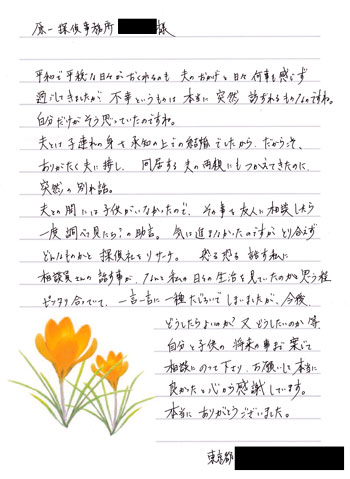 原一探偵事務所 様
平和で平穏な日々がおくれるのも 夫のおかげと日々何事も感じず
過ごしてきましたが 不幸というものは 本当に突然 訪ずれるものなのですね。
自分だけがそう思っていたのですね。
夫とは子連れの身を承知の上での結婚でしたから、だからこそ、
ありがたく夫に接し、 同居する夫の両親にもつかえてきたのに、
突然の別れ話。
夫との間には子供がいなかったので、その事を友人に相談したら
一度調べて見たら?の助言。 気は進まなかったのですがとり合えず
どんなものかと探偵社をリサーチ。 恐る恐る話す私に
相談員さんの話す事が なんと私の日々の生活を見ていたのかと思う程
ピッタリ合っていて、一言一言に一種たじろいでしまいましたが、今後、
どうしたらよいのか?又どうしたいのか等
自分と子供の将来の事まで案じて
相談にのって下さり、お願いして本当に
良かったと心から感謝しています。
本当にありがとうございました。
東京都